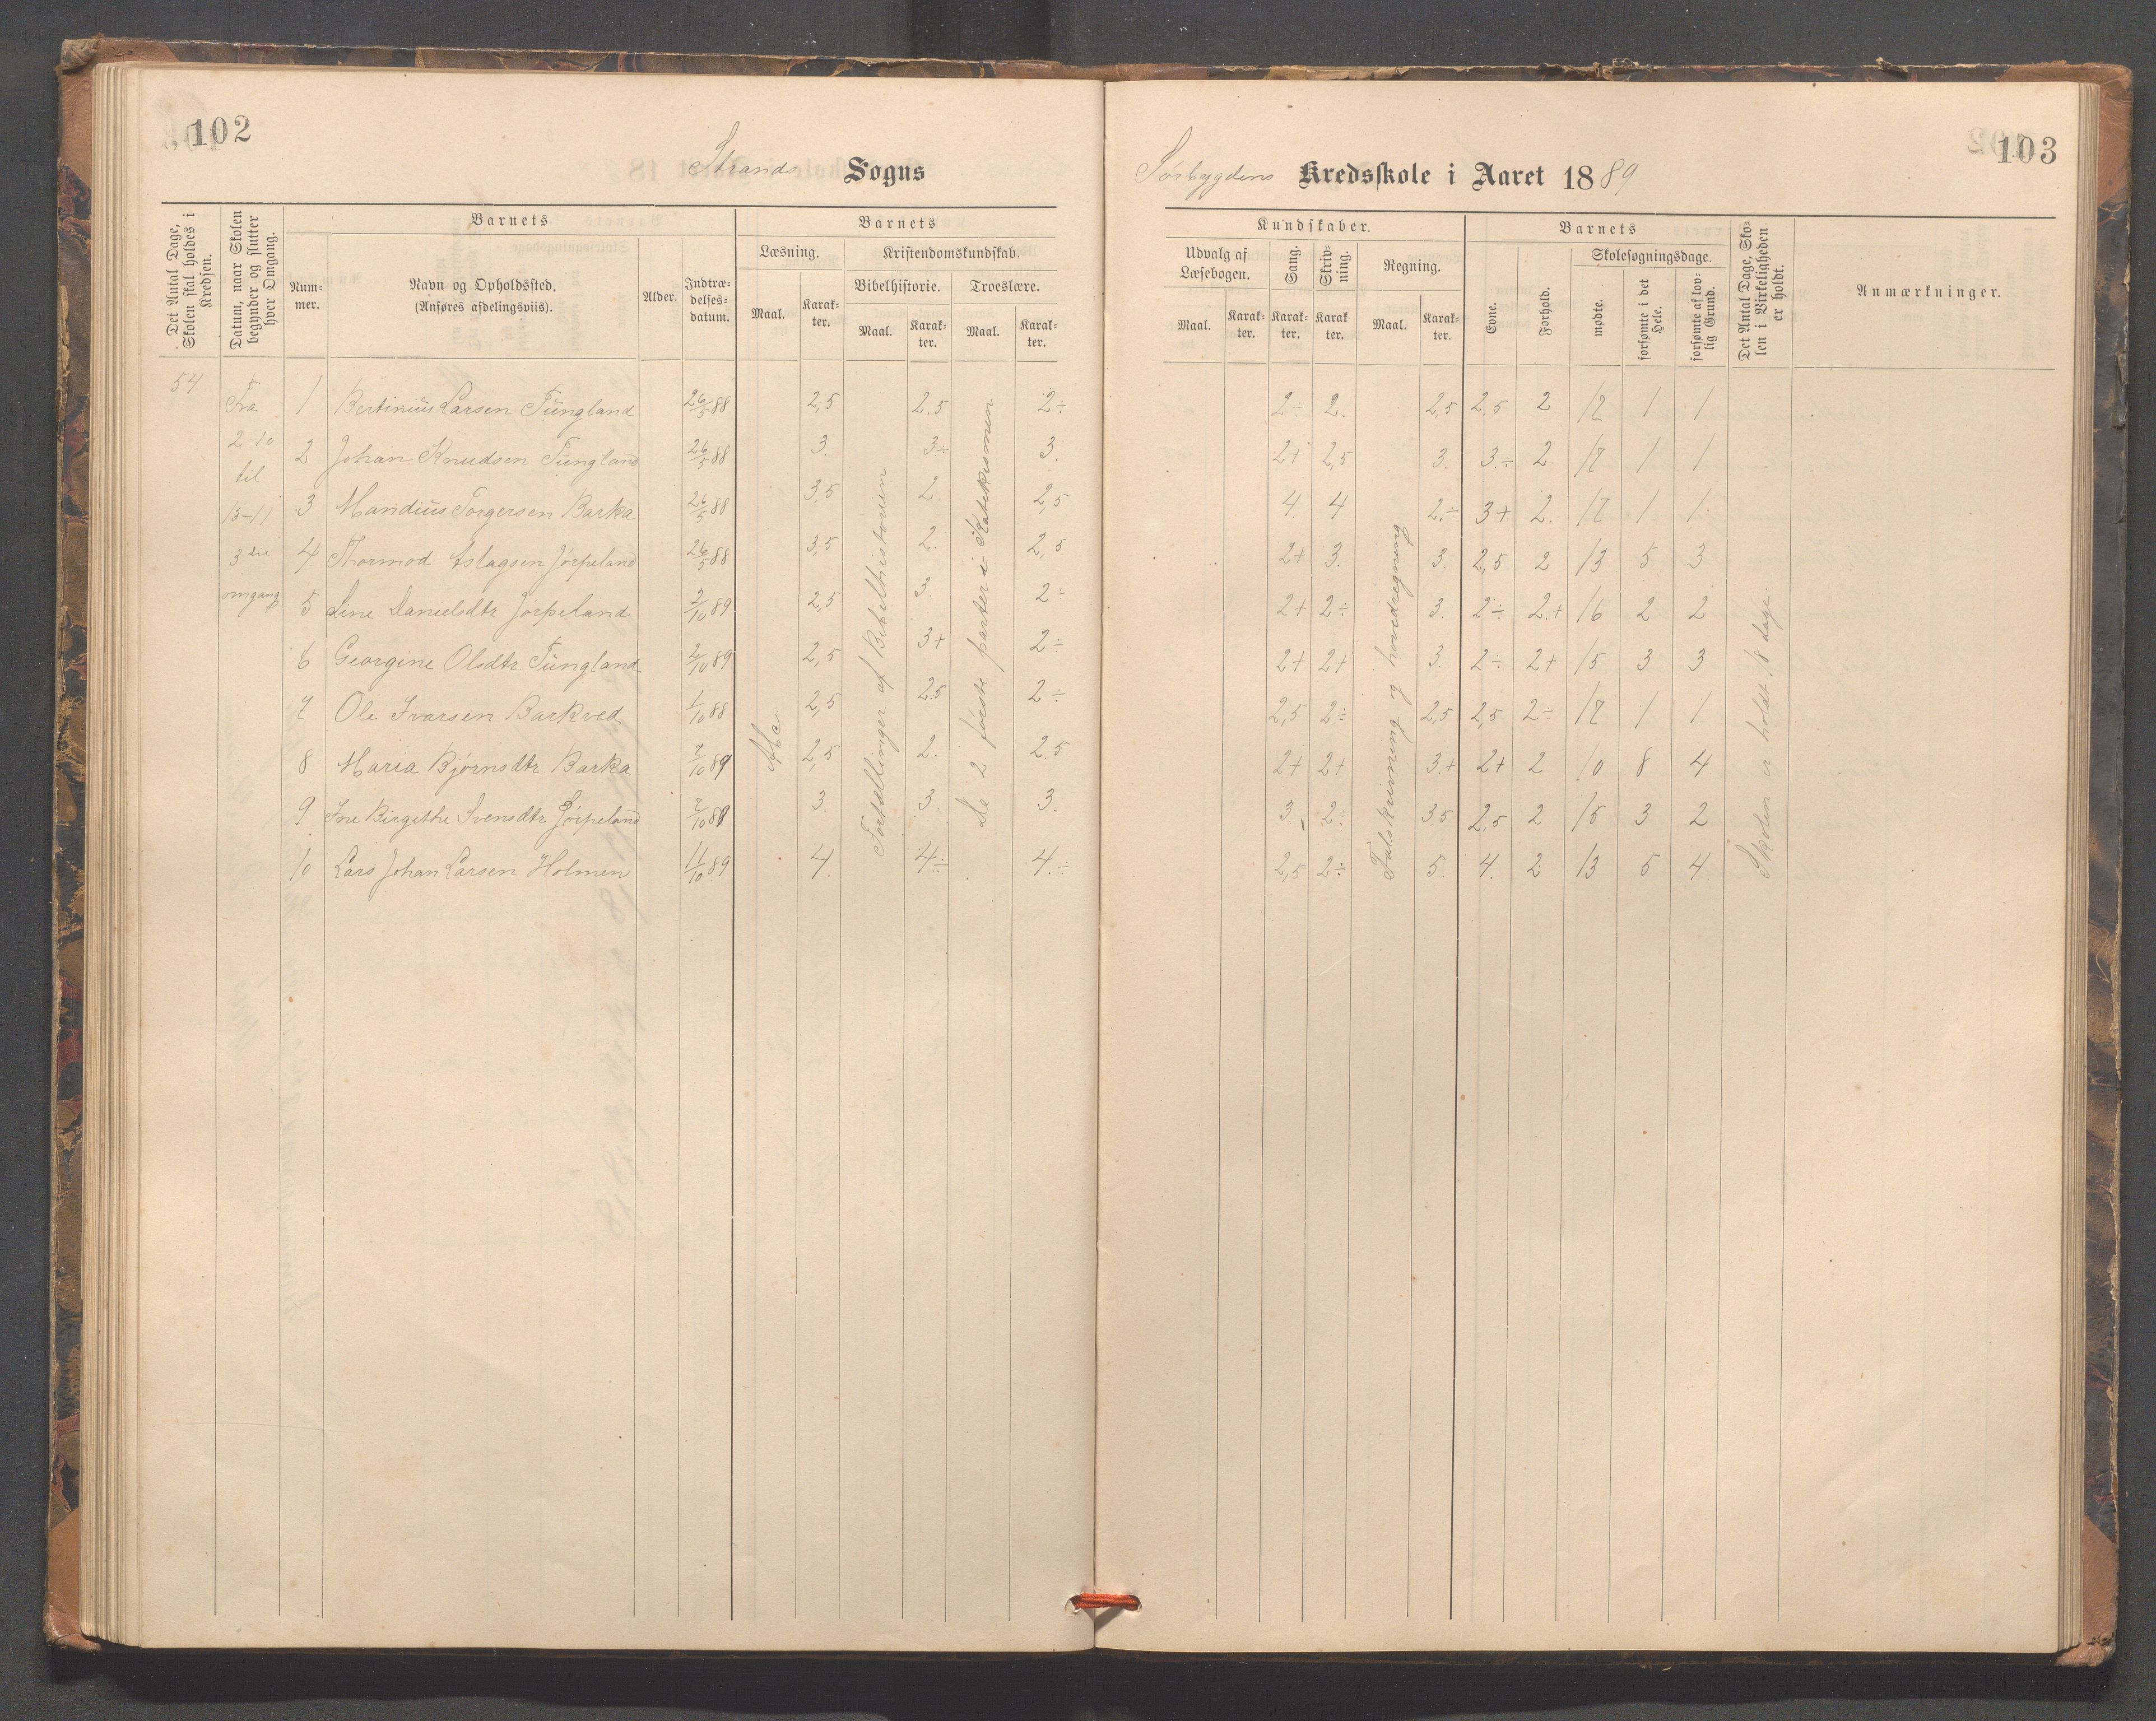 102
Strands Sogns
Det Antal Dage, Skolen skal holdes i Kredsen.
Datum, naar Skolen begynder og slutter hver Omgang.
Barnets
Nummer.
Navn og Opholdssted.
(Anføres afdelingsviis).
Alder.
Indtrædelsesdatum.
Barnets
Læsning.
Kristendomskundskab.
Bibelhistorie.
Troeslære.
Maal.
Karakter.
Maal.
Karakter.
Maal.
Karakter.
54
Fra
2-10
til
13-11
3die
omgang
1 Bertinius Larsen Tungland 26/5 88 2,5 2.5 2÷
2 Johan Knudsen Tungland 26/5 88 3. 3÷ 3.
3 Mandius Torgersen Barka 26/5 88 3,5 2. 2,5
4 Thormod Aslagsen Jørpeland 26/5 88 3,5 2. 2,5
5 Line Danielsdtr Jørpeland 2/10 89 2,5 3. 2÷
6 Georgine Olsdtr. Tungland 2/10 89 2,5 3+ 2÷
7 Ole Ivarsen Barkved 1/10 88 2,5 2.5 2÷
8 Maria Bjørnsdtr Barka 2/10 89 2,5 2. 2.5
9 Ine Birgithe Svensdtr Jørpeland 2/10 88 3. 3. 3.
10 Lars Johan Larsen Holmen 11/10 89 4. 4÷ 4.÷
Abc.
Fortællinger af Bibelhistorien
De 2 første parter i Katekismen
103
Sørbygdens Kredsskole i Aaret 1889
Kundskaber.
Udvalg af Læsebogen.
Sang.
Skrivning.
Regning.
Maal.
Karakter.
Karakter.
Karakter.
Maal.
Karakter.
Barnets
Evne.
Forhold.
Skolesøgningsdage.
mødte.
forsømte i det Hele.
forsømte af lovlig Grund.
Det Antal Dage, Skolen i Virkeligheden er holdt.
Anmærkninger.
2÷ 2. 2,5 2,5 2 17 1 1
2+ 2,5 3. 3.÷ 2. 17 1 1
4. 4 2.÷ 3+ 2. 17 1 1.
2+ 3. 3. 2,5 2 13 5 3
2+ 2÷ 3. 2÷ 2.+ 16 2 2
2+ 2+ 3. 2÷ 2+ 15 3 3
2,5 2÷ 2,5 2,5 2÷ 17 1 1
2+ 2+ 3.+ 2+ 2 10 8 4
3. 2÷ 3.5 2,5 2 15 3 2
2,5 2÷ 5. 4. 2 13 5 4.
Talskrivning og hovedregning
Skolen er holdt 18 dage.